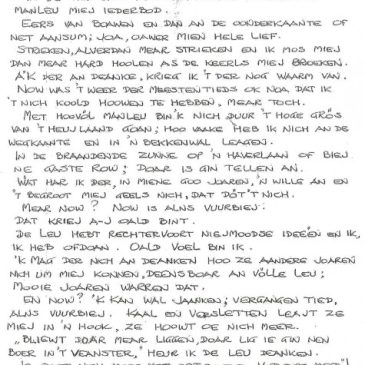 MANLEU MIEJ IEDERBOD.
EERS VAN BOAWEN EN DAN AN DE OONDERKAANTE OF
NET AANSUM; JOA, OAWER MIEN HELE LIEF.
STRIEKEN, ALVERDAN MEAR STRIEKEN EN IK MOS MIEJ
DAN MEAR HARD HOOLEN AS DE KEERLS MIEJ BROEKEN.
A'K DER AN DEANKE, KRIEG IK 'T DER NOG WAARM VAN.
NOW WAS 'T WEER DER MEESTENTIEDS OK NOA DAT IK
'T NICH KOOLD HOOWEN TE HEBBEN, MEAR TOCH.
MET HOOVÖL MANLEU BIN'K NICH DUUR 'T HOGE GRÖS
VAN 'T HEUJLAAND GOAN; HOO VAAKE HEB IK NICH AN DE
WEGKAANTE EN IN 'N BEKKENWAL LEAGEN.
IN DE BRAANDENDE ZUNNE OP 'N HAVERLAAN OF BIEJ
NE GASTE ROW; DOAR IS GIN TELLEN AN.
WAT HAR IK DER, IN MIENE GOO JOAREN, 'N WILLE AN EN
'T BEGROOT MIEJ GEELS NICH, DAT DÖT 'T NICH.
MEAR NOW? NOW IS ALNS VUURBIEJ.
DAT KRIEJ A-J OALD BINT.
DE LEU HEBT RECHTERVOORT NIEJMOODSE IDEEËN EN IK,
IK HEB OFDOAN. OALD VOEL BIN IK.
'K MAG DER NICH AN DEANKEN HOO ZE AANDERE JOAREN
NICH UM MIEJ KONNEN, DEENSBOAR AN VÖLLE LEU;
MOOIE JOAREN WARREN DAT.
EN NOW? 'K KAN WAL JAANKEN; VERGANGEN TIED,
ALNS VUURBIEJ. KAAL EN VERSLETTEN LEAJT ZE
MIEJ IN 'N HOOK, ZE HOOWT OE NICH MEER.
"BLIEWT DOAR MEAR LIGGEN, DOAR LIG IE GIN NEN
BOER IN 'T VEANSTER," HEUR IK DE LEU DEANKEN.